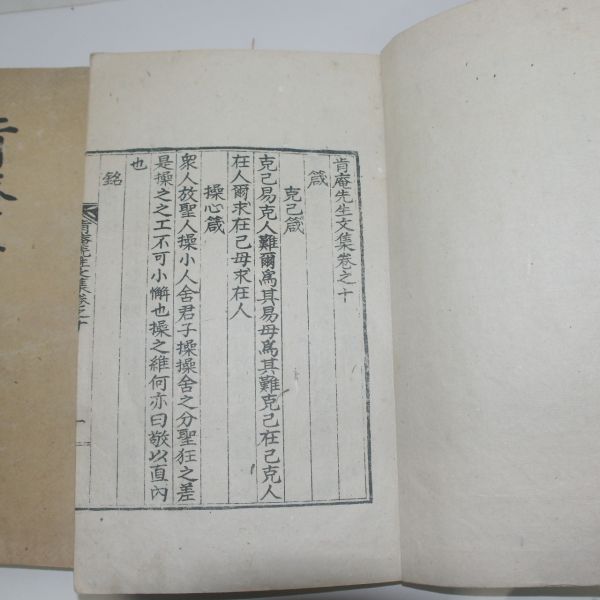 肯庵先生文集卷之十
箴
克己箴
克己易克人難爾爲其易毋爲其難克己在己克人
在人爾求在己毋求在人
操心箴
衆人放聖人操小人舍君子操操舍之分聖狂之差
是操之之工不可小懈也操之維何亦曰敬以直內
也
銘
肯庵先生文集卷之十
一